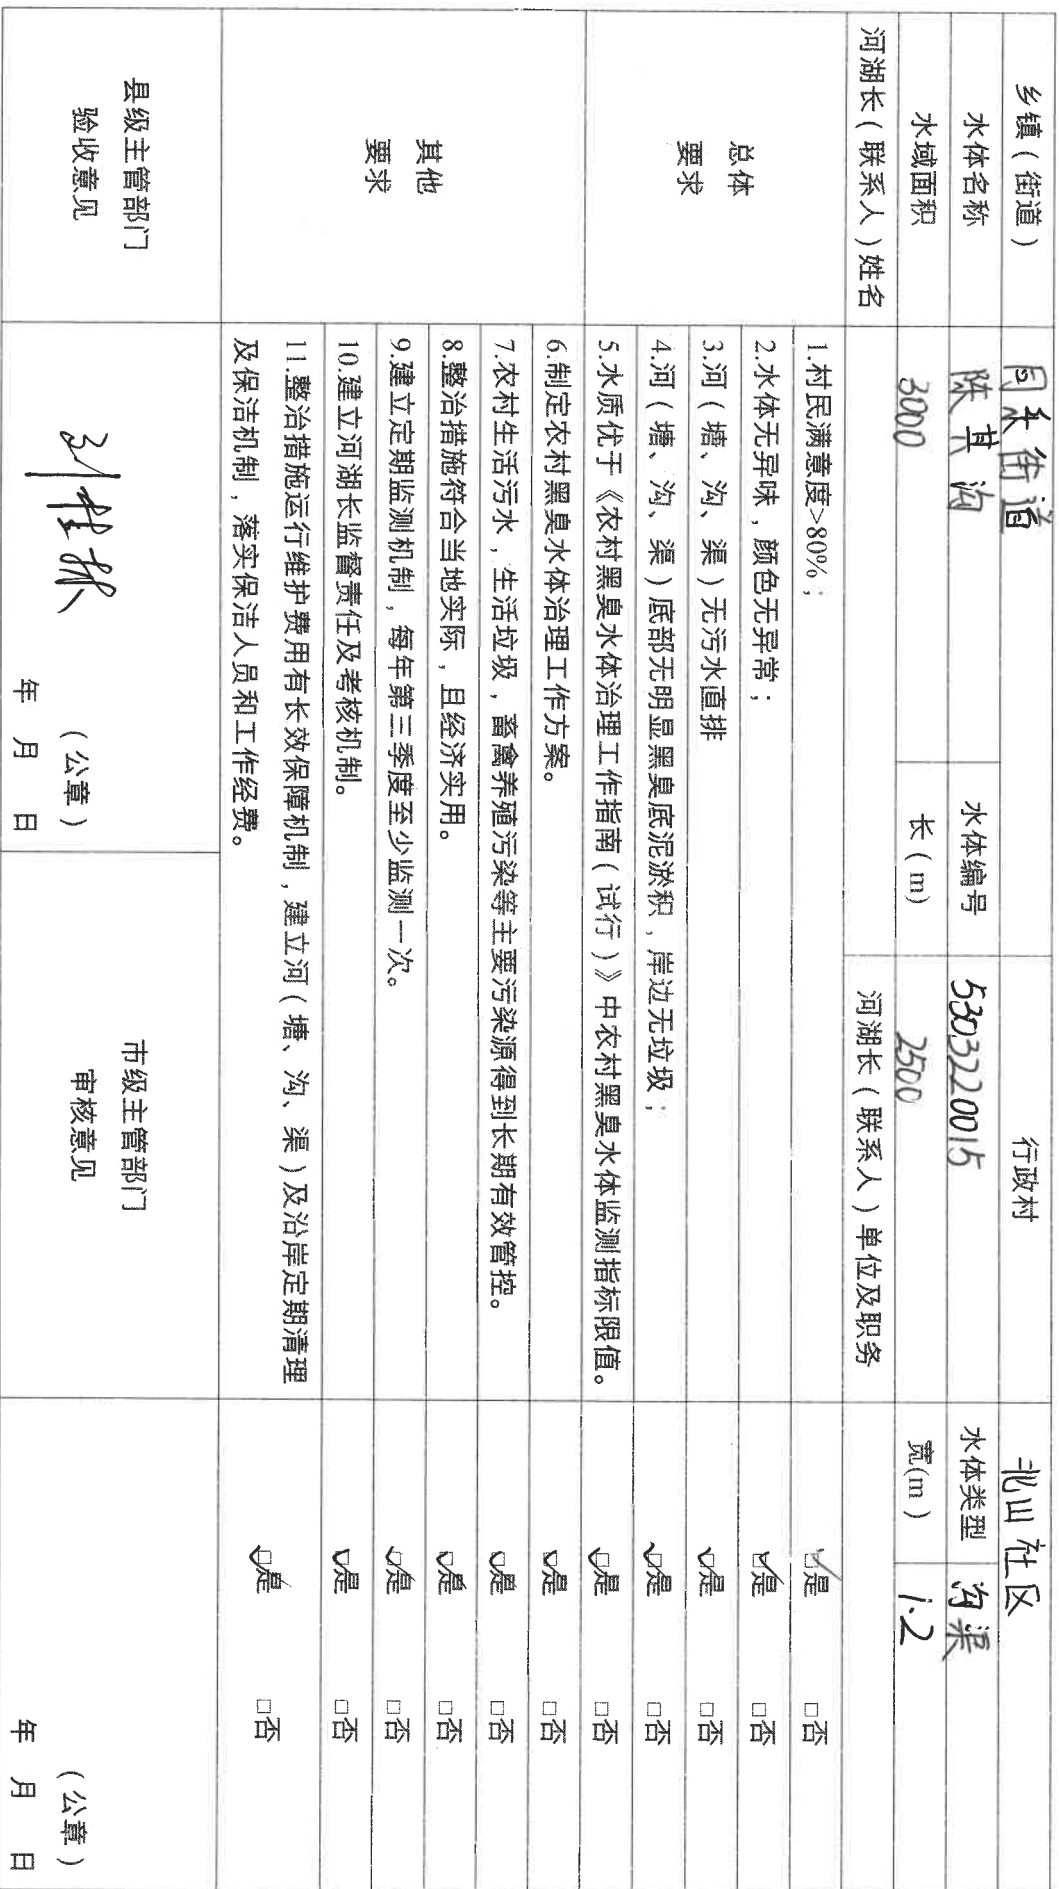 乡镇（街道） 同乐街道 行政村 北山社区
水体名称 陈其沟 水体编号 5303220015 水体类型 沟渠
水域面积 3000 长（m） 2500 宽(m) 1.2
河湖长（联系人）姓名 河湖长（联系人）单位及职务
总体
要求
1.村民满意度>80%； ☑是 □否
2.水体无异味，颜色无异常； ☑是 □否
3.河（塘、沟、渠）无污水直排 ☑是 □否
4.河（塘、沟、渠）底部无明显黑臭底泥淤积，岸边无垃圾； ☑是 □否
5.水质优于《农村黑臭水体治理工作指南（试行）》中农村黑臭水体监测指标限值。 ☑是 □否
其他
要求
6.制定农村黑臭水体治理工作方案。 ☑是 □否
7.农村生活污水，生活垃圾，畜禽养殖污染等主要污染源得到长期有效管控。 ☑是 □否
8.整治措施符合当地实际，且经济实用。 ☑是 □否
9.建立定期监测机制，每年第三季度至少监测一次。 ☑是 □否
10.建立河湖长监督责任及考核机制。 ☑是 □否
11.整治措施运行维护费用有长效保障机制，建立河（塘、沟、渠）及沿岸定期清理
及保洁机制，落实保洁人员和工作经费。 ☑是 □否
县级主管部门
验收意见
（公章）
年 月 日
市级主管部门
审核意见
（公章）
年 月 日